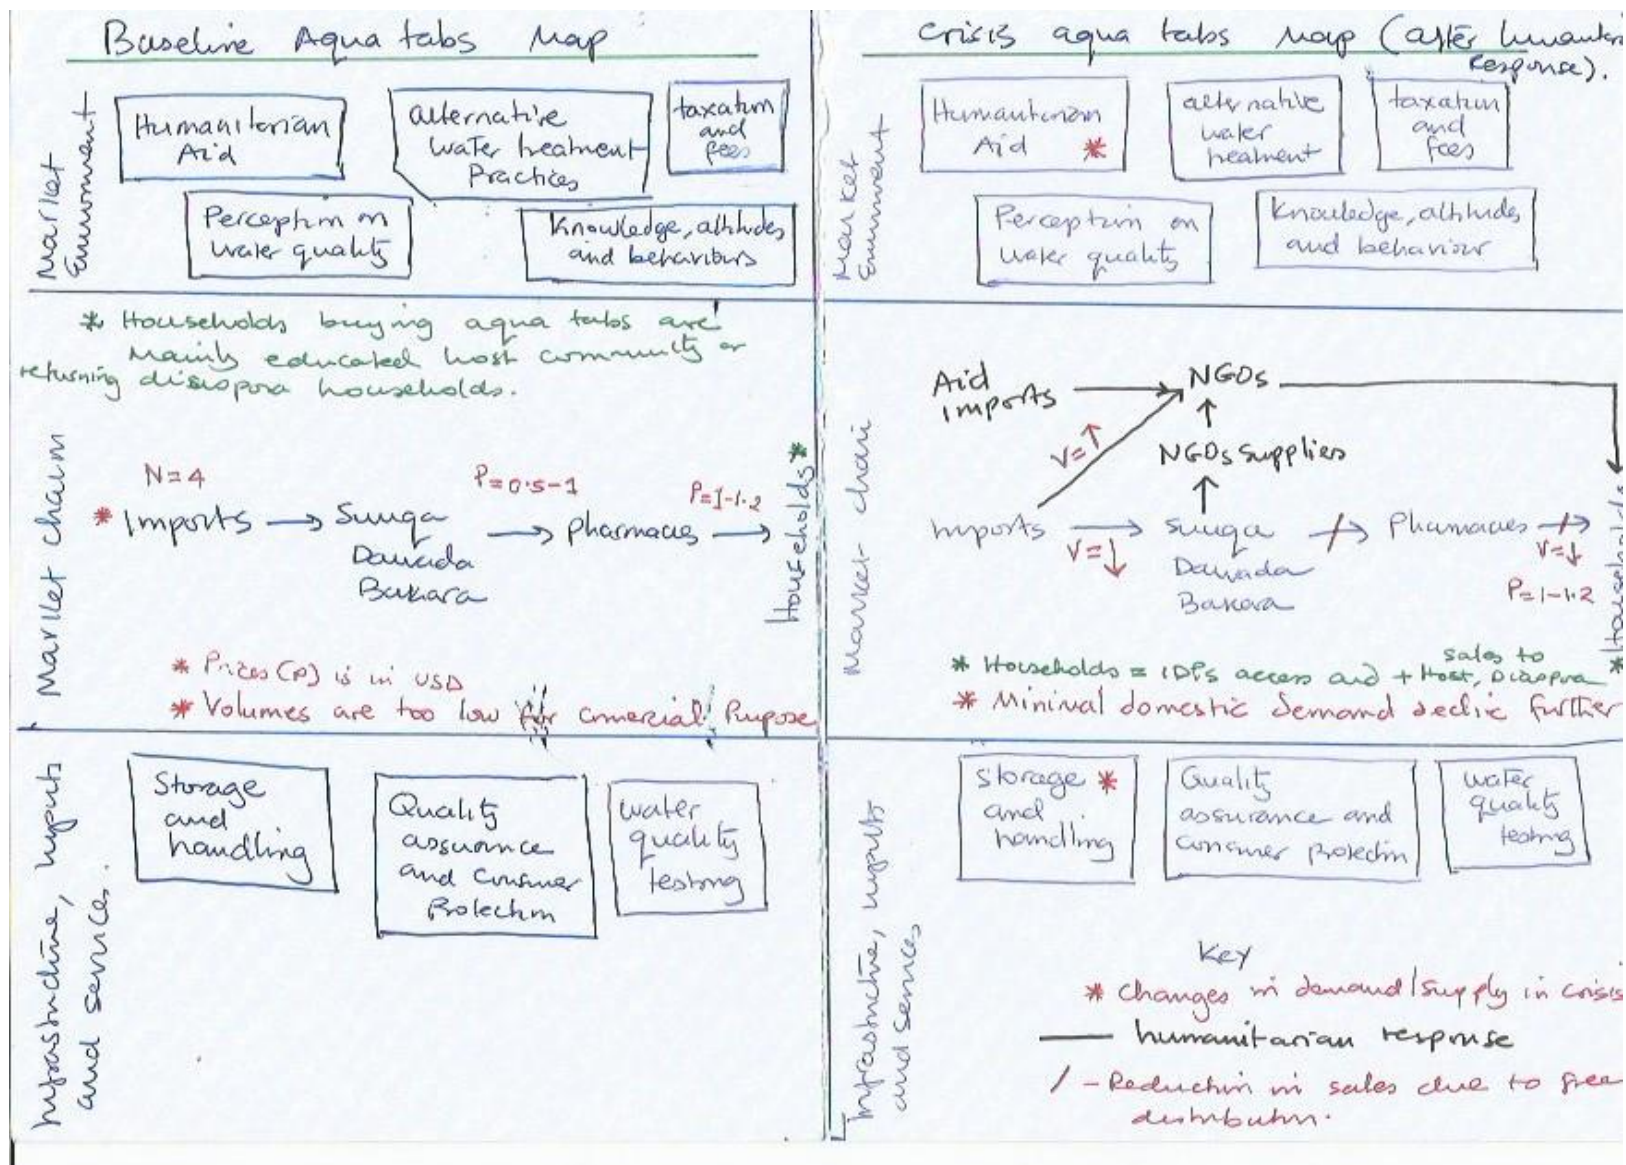 Baseline Aqua tabs Map
Market
Environment
Humanitarian
Aid
alternative
water treatment
Practices
taxation
and
fees
Perception on
water quality
Knowledge, attitudes
and behaviours
* Households buying aqua tabs are
Mainly educated host community or
returning diaspora households.
Market chain
N=4
* Imports
Suuqa
Dawada
Bakara
P=0.5-1
Pharmacies
P=1-1.2
Households *
* Prices (P) is in USD
* Volumes are too low for comercial Purpose
Infrastructure, Inputs
and service.
Storage
and
handling
Quality
assurance
and Consumer
Protection
water
quality
testing
Crisis aqua tabs Map (after
Response).
Market
Environment
Humanitarian
Aid *
alternative
water
treatment
taxation
and
fees
Perception on
water quality
Knowledge, attitudes
and behaviour
Market chain
Aid
imports
NGOs
V=↑
NGOs suppliers
Imports
V=↓
Suuqa
Dawada
Bakara
Pharmacies
V=↓
P=1-1.2
Households
sales to
* Households = IDPs access and + Host, Diaspora *
* Minimal domestic demand declie further
Infrastructure, inputs
and services
Storage *
and
handling
Quality
assurance and
consumer protection
water
quality
testing
Key
* Changes in demand/supply in crisis
humanitarian response
/ - Reduction in sales due to free
distribution.